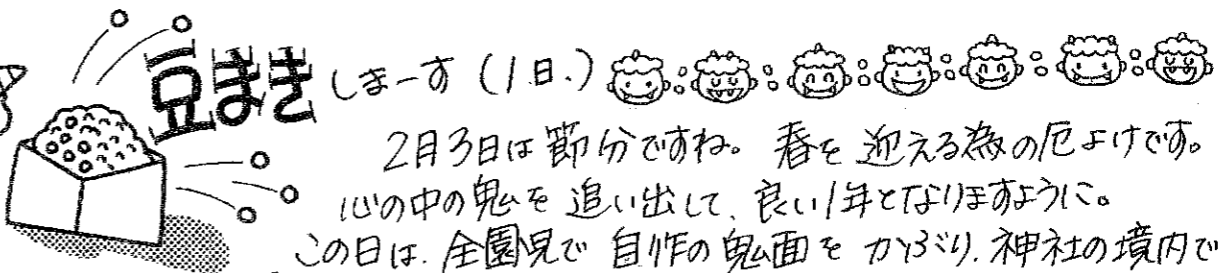 豆まきしまーす(1日.)
2月3日は節分ですね。春を迎える為の厄よけです。
心の中の鬼を追い出して、良い1年となりますように。
この日は、全園児で自作の鬼面をかぶり、神社の境内で